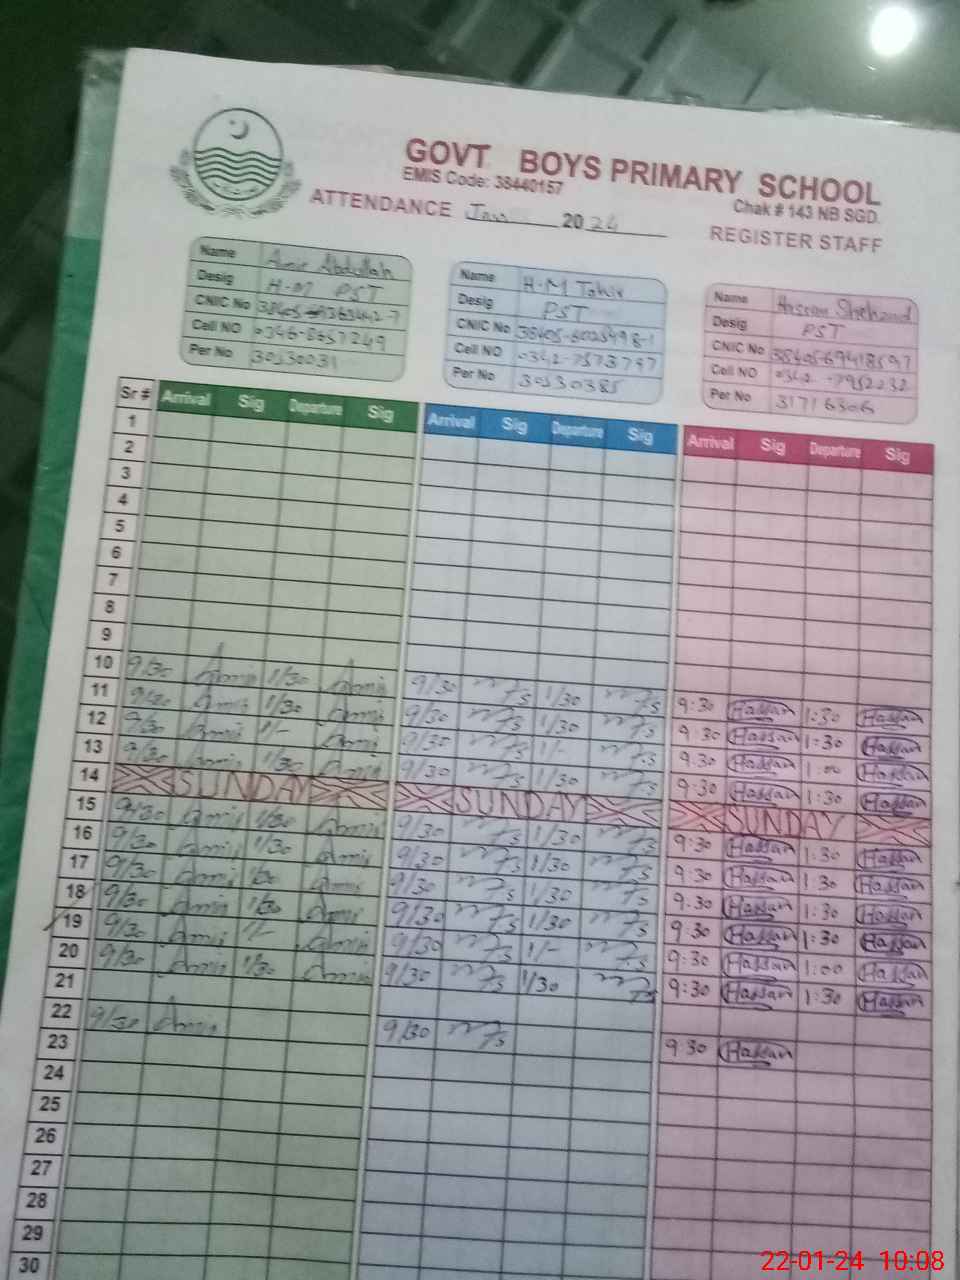 GOVT BOYS PRIMARY SCHOOL
EMIS Code: 38440157
Chak # 143 NB SGD.
ATTENDANCE Jan 2024 REGISTER STAFF
Name Amir Abdullah
Desig H-M PST
CNIC No
Cell NO 0346-8657249
Per No 30330031
Name H-M Tahir
Desig PST
CNIC No
Cell NO 0342-7573797
Per No 30330385
Name Hassan Shehzad
Desig PST
CNIC No
Cell NO
Per No 31716306
Sr # Arrival Sig Departure Sig Arrival Sig Departure Sig Arrival Sig Departure Sig
1
2
3
4
5
6
7
8
9
10 9/30 Amir 1/30 Amir 9/30 1/30 9:30 Hassan 1:30 Hassan
11 9/30 Amir 1/30 Amir 9/30 1/30 9:30 Hassan 1:30 Hassan
12 9/30 Amir 1/- Amir 9/30 1/- 9:30 Hassan 1:00 Hassan
13 9/30 Amir 1/30 Amir 9/30 1/30 9:30 Hassan 1:30 Hassan
14 SUNDAY SUNDAY SUNDAY
15 9/30 Amir 1/30 Amir 9/30 1/30 9:30 Hassan 1:30 Hassan
16 9/30 Amir 1/30 Amir 9/30 1/30 9:30 Hassan 1:30 Hassan
17 9/30 Amir 1/30 Amir 9/30 1/30 9:30 Hassan 1:30 Hassan
18 9/30 Amir 1/30 Amir 9/30 1/30 9:30 Hassan 1:30 Hassan
19 9/30 Amir 1/- Amir 9/30 1/- 9:30 Hassan 1:00 Hassan
20 9/30 Amir 1/30 Amir 9/30 1/30 9:30 Hassan 1:30 Hassan
21
22 9/30 Amir 9/30 9:30 Hassan
23
24
25
26
27
28
29
30
22-01-24 10:08